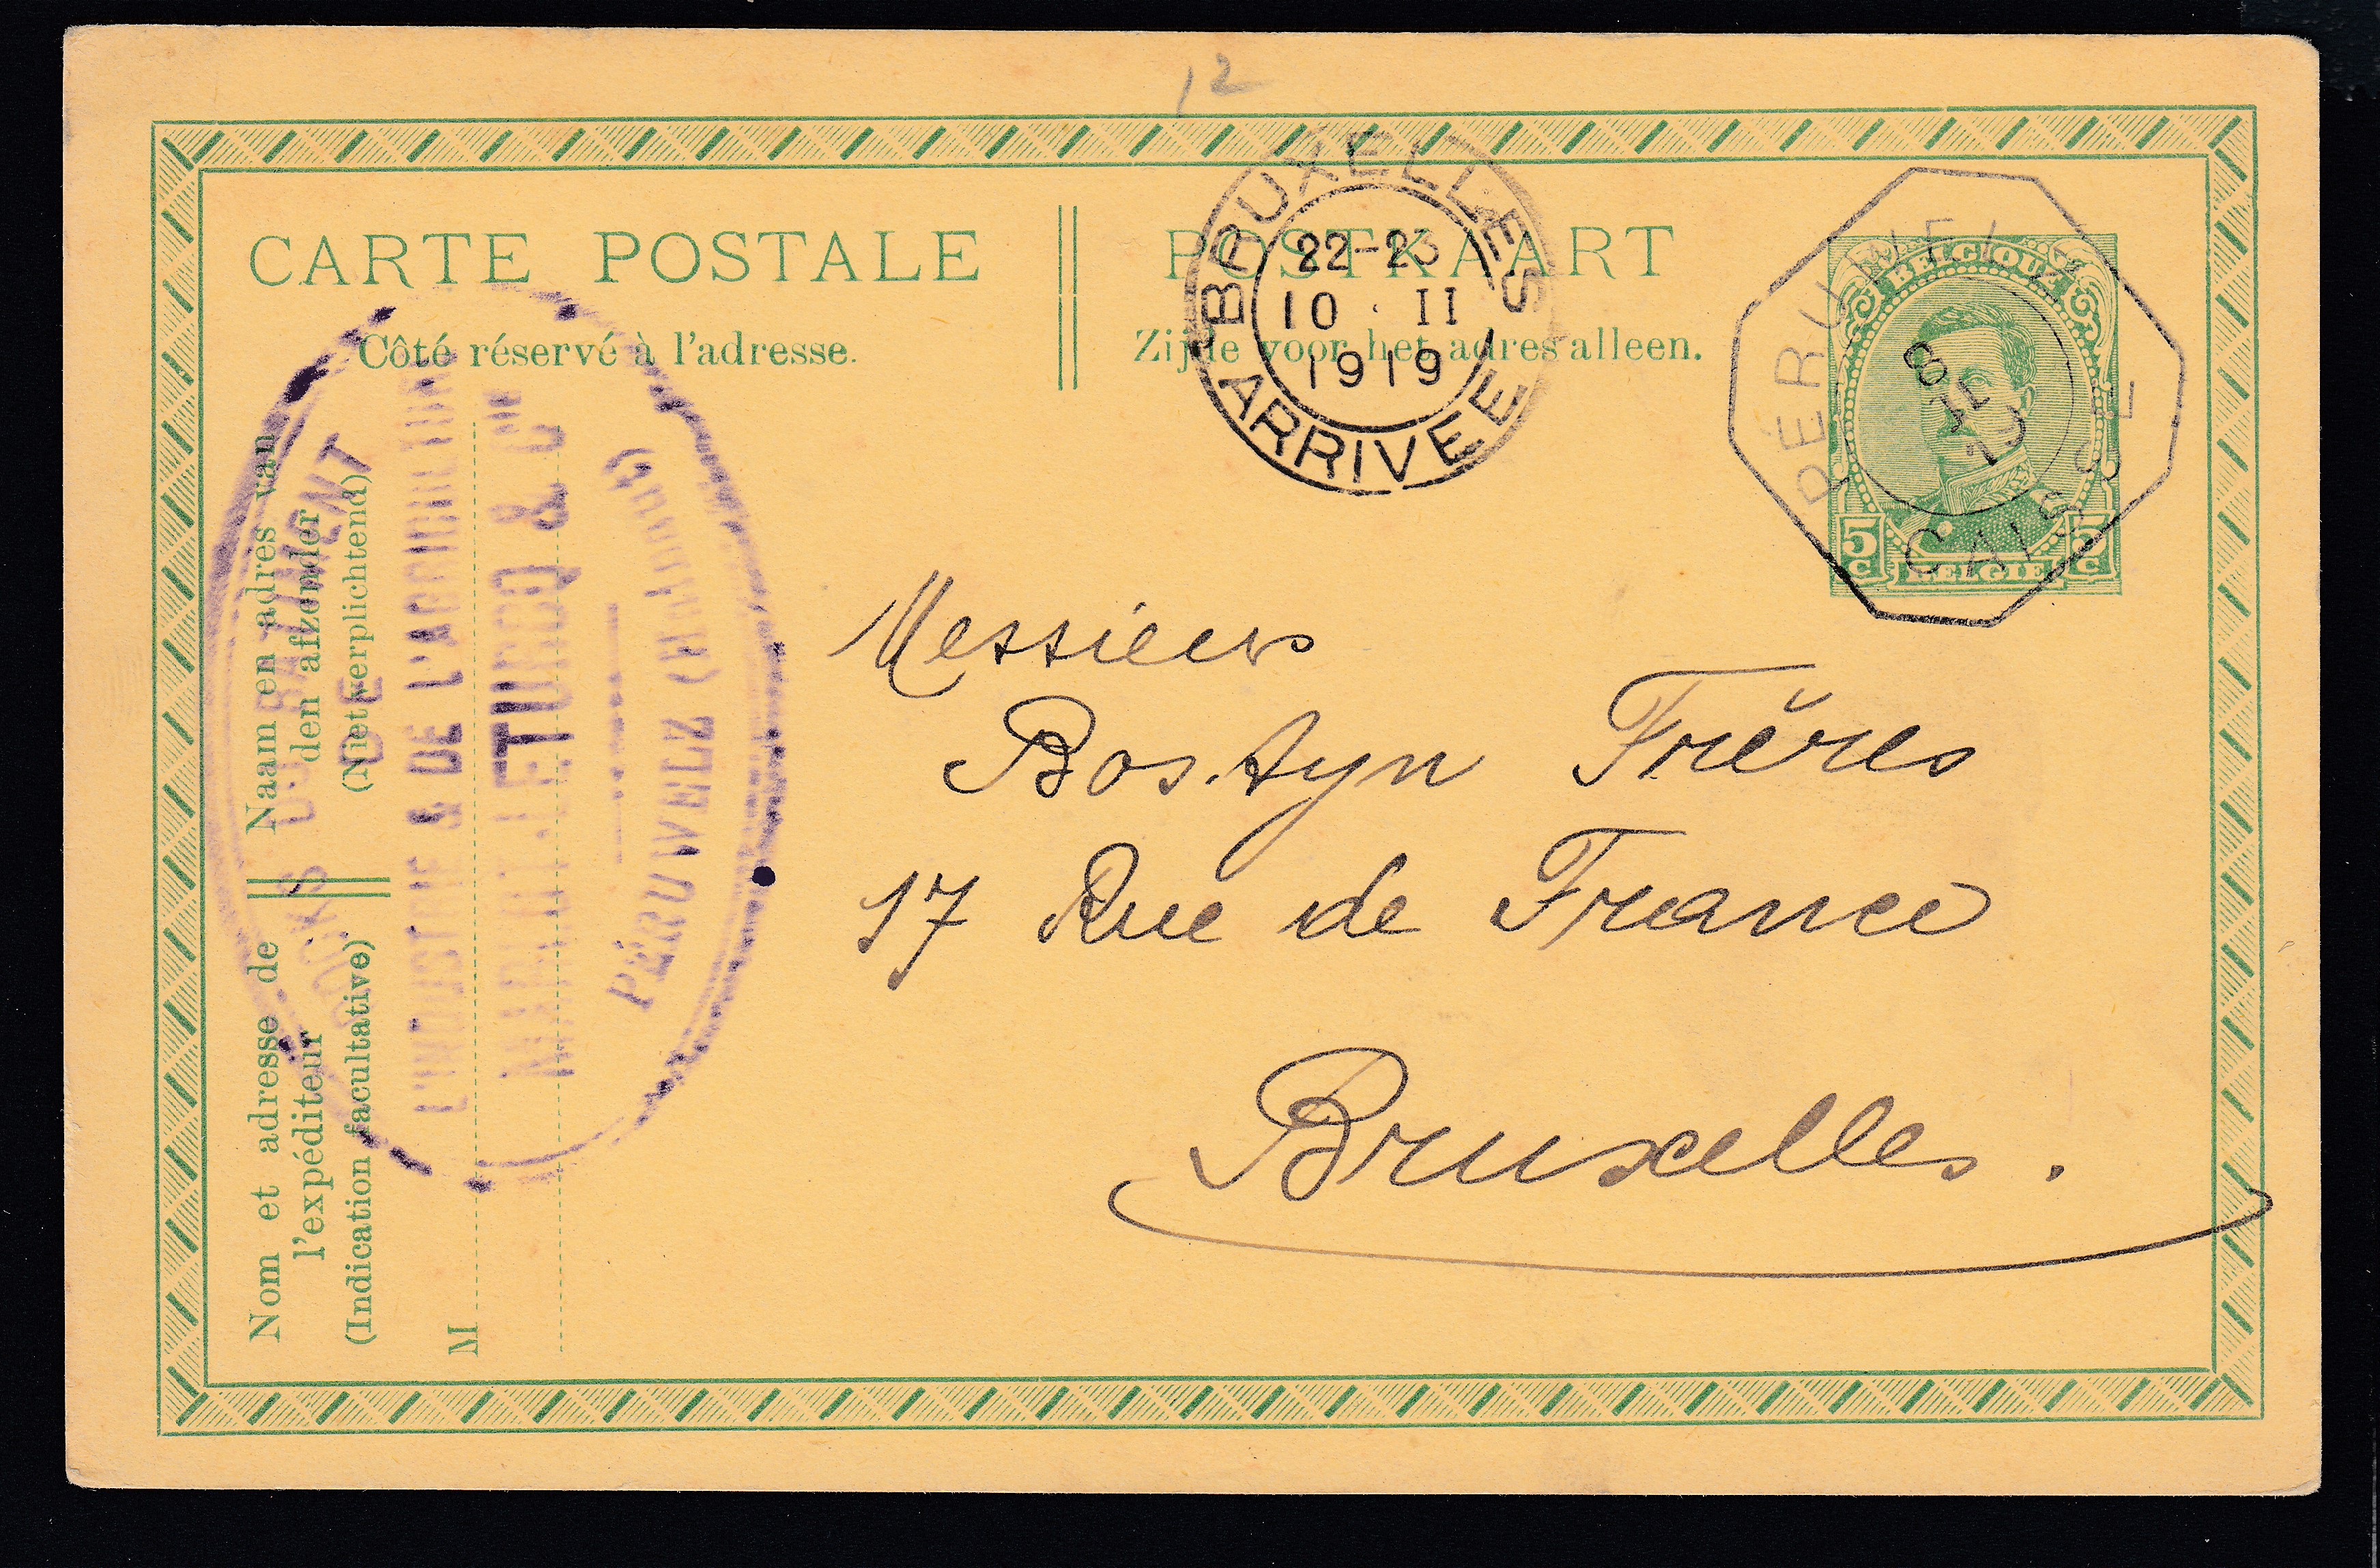 12
CARTE POSTALE
POSTKAART
Côté réservé à l'adresse.
Zijde voor het adres alleen.
BRUXELLES
22-23
10 · II
1919
ARRIVEE
PÉRUWEL
8
CAISSE
BELGIQUE
5 c
BELGIË
5 c
Messieurs
Bostyn Frères
17 Rue de France
Bruxelles.
Naam en adres van
den afzender
(Niet verplichtend)
Nom et adresse de
l'expéditeur
(Indication facultative)
M
DE
L'INDUSTRIE & DE L'AGRICULTURE
LETURCQ & Cie
PÉRUWELZ (Hainaut)